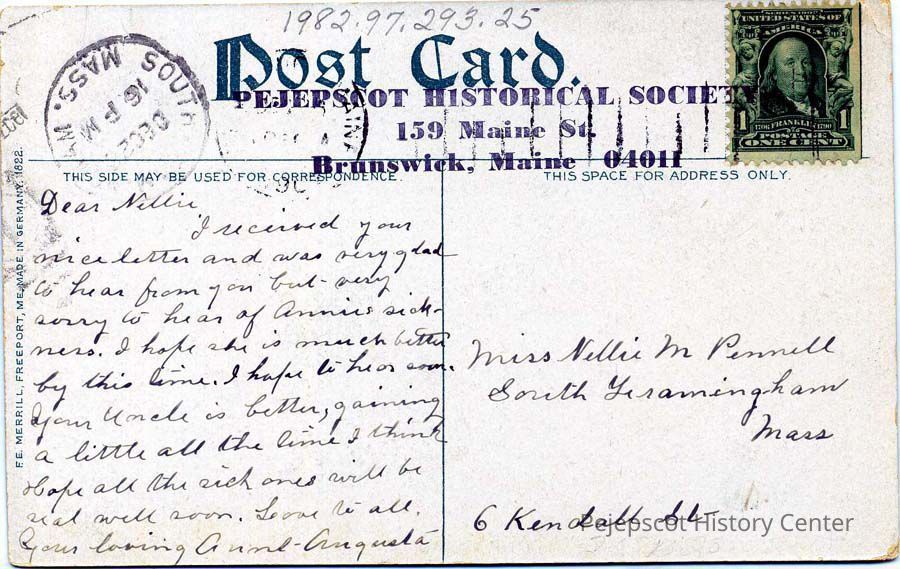 1982.97.293.25
Post Card.
PEJEPSCOT HISTORICAL SOCIETY
159 Maine St.
Brunswick, Maine 04011
SOUTH
MASS.
DEC
16
P M
SERIES 1902
UNITED STATES OF
AMERICA
1706 FRANKLIN 1790
1 POSTAGE 1
ONE CENT
THIS SIDE MAY BE USED FOR CORRESPONDENCE.
THIS SPACE FOR ADDRESS ONLY.
F.E. MERRILL, FREEPORT, ME. MADE IN GERMANY. 1822.
Dear Nellie
I received your
nice letter and was very glad
to hear from you but very
sorry to hear of Annie sick-
ness. I hope she is much better
by this time. I hope to hear soon.
Your Uncle is better, gaining
a little all the time I think
Hope all the sick ones will be
real well soon. Love to all.
Your loving Aunt Augusta
Miss Nellie M Pennell
South Framingham
Mass
6 Kendall St
Pejepscot History Center